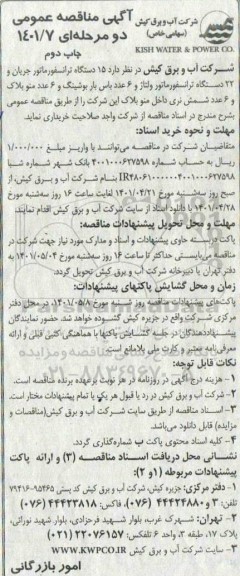 شرکت آب و برق کیش
(سهامی خاص)
KISH WATER & POWER CO.
آگهی مناقصه عمومی
دو مرحله‌ای ۱۴۰۱/۷
چاپ دوم
شرکت آب و برق کیش در نظر دارد ۱۵ دستگاه ترانسفورماتور جریان و
۲۲ دستگاه ترانسفورماتور ولتاژ و ۶ عدد باس بار پوشینگ و ۶ عدد منو بلاک
و ۶ عدد شمش نری داخل منو بلاک این شرکت را از طریق مناقصه عمومی
بشرح مندرج در اسناد مناقصه از شرکت واجد صلاحیت خریداری نماید.
مهلت و نحوه خرید اسناد:
متقاضیان شرکت در مناقصه می‌توانند با واریز مبلغ ۱/۰۰۰/۰۰۰
ریال به حساب شماره ۴۰۰۱۰۰۰۶۲۷۵۹۸ بانک شهر شماره شبا
بنام شرکت آب و برق کیش، از
صبح روز سه‌شنبه مورخ ۱۴۰۱/۰۴/۲۱ لغایت ساعت ۱۶ روز سه‌شنبه مورخ
۱۴۰۱/۰۴/۲۸ با دانلود اسناد از سایت شرکت آب و برق کیش اقدام نمایند.
مهلت و محل تحویل پیشنهادات مناقصه:
پاکت دربسته حاوی پیشنهادات و اسناد و مدارک مورد نیاز جهت شرکت در
مناقصه می‌بایستی حداکثر تا ساعت ۱۶ روز سه‌شنبه مورخ ۱۴۰۱/۰۵/۰۴ به
دفتر تهران یا دبیرخانه شرکت آب و برق کیش تحویل گردد.
زمان و محل گشایش پاکتهای پیشنهادات:
پاکت‌های پیشنهادات مناقصه روز شنبه مورخ ۱۴۰۱/۰۵/۸، در محل دفتر
مرکزی شرکت واقع در جزیره کیش گشوده خواهد شد. حضور نمایندگان
پیشنهاددهندگان در جلسه گشایش پاکتها با هماهنگی کتبی قبلی و ارائه
معرفی‌نامه معتبر و کارت ملی بلامانع است.
نکات قابل توجه:
۱- هزینه درج آگهی در روزنامه در هر نوبت برعهده برنده مناقصه است.
۲- شرکت آب و برق کیش در رد یا قبول هر یک یا تمام پیشنهادات مختار است.
۳- اسناد مناقصه از طریق سایت شرکت آب و برق کیش(مناقصات و
مزایده) قابل دانلود می‌باشد.
۴- کلیه اسناد محتوی پاکت ب شماره‌گذاری گردد.
نشانی محل دریافت اسناد مناقصه (۳) و ارائه پاکت
پیشنهادات مربوطه (۱ و ۲):
۱- دفتر مرکزی: جزیره کیش، شرکت آب و برق کیش کد پستی ۹۵۴۶۵-۷۹۴۱۶
تلفن: ۳ و ۴۴۴۲۴۸۸۰ (۰۷۶)، فاکس: ۴۴۴۲۳۸۱۸ (۰۷۶)
۲- تهران: شهرک غرب، بلوار شهید فرحزادی، بلوار شهید نورانی،
پلاک ۱۷، طبقه ۳، واحد ۶ تلفکس: ۲۲۰۷۶۱۵۷ (۰۲۱)
۳- سایت شرکت آب و برق کیش WWW.KWPCO.IR
امور بازرگانی